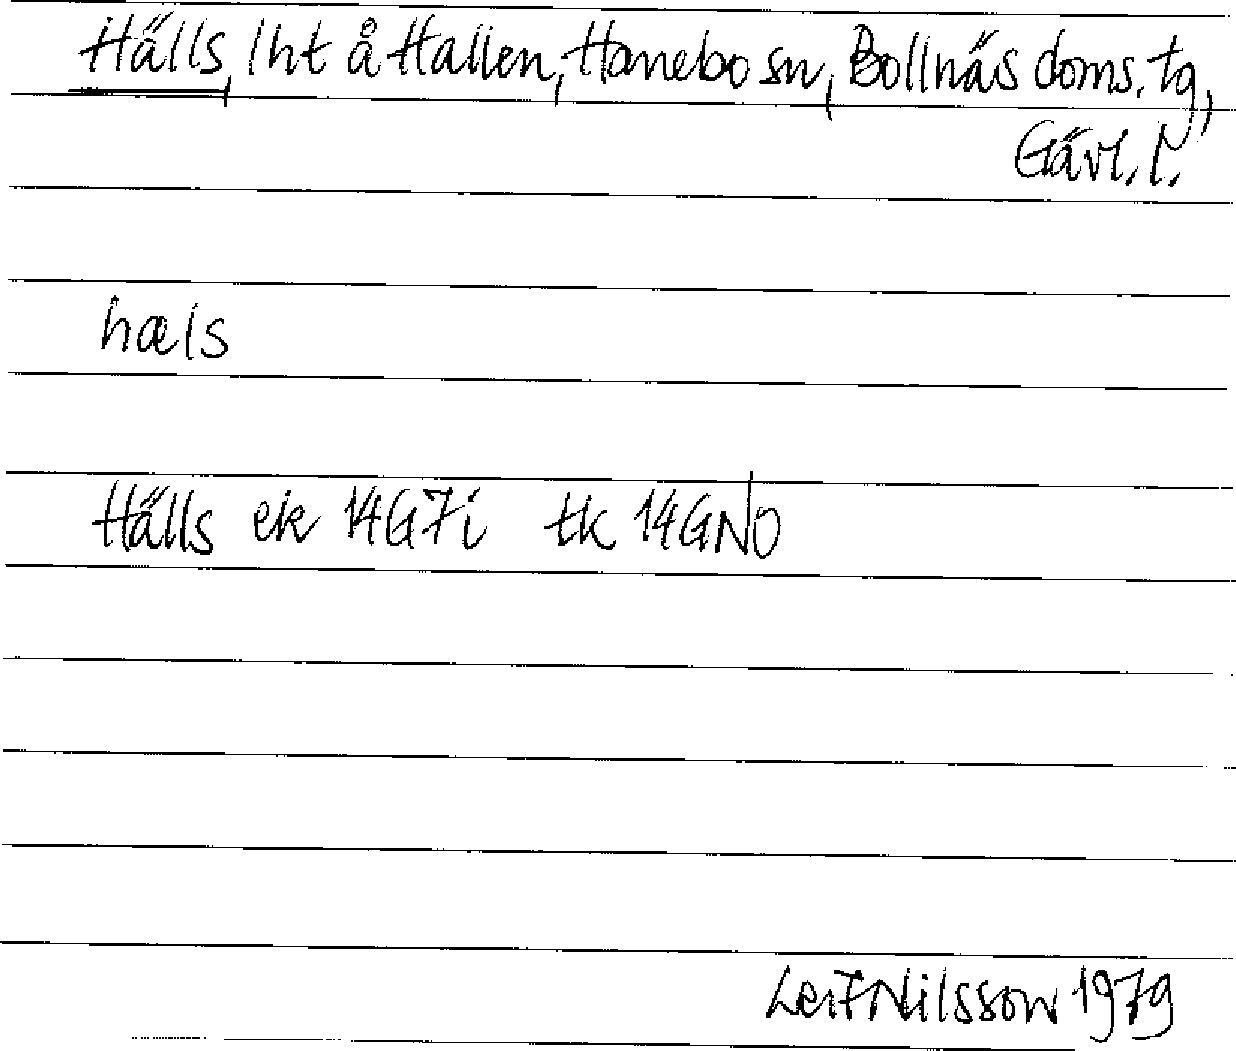 Hälls, lht å Hallen, Hanebo sn, Bollnäs doms. tg,
Gävl. l.
hæls
Hälls ek 14G7i tk 14GNO
Leif Nilsson 1979